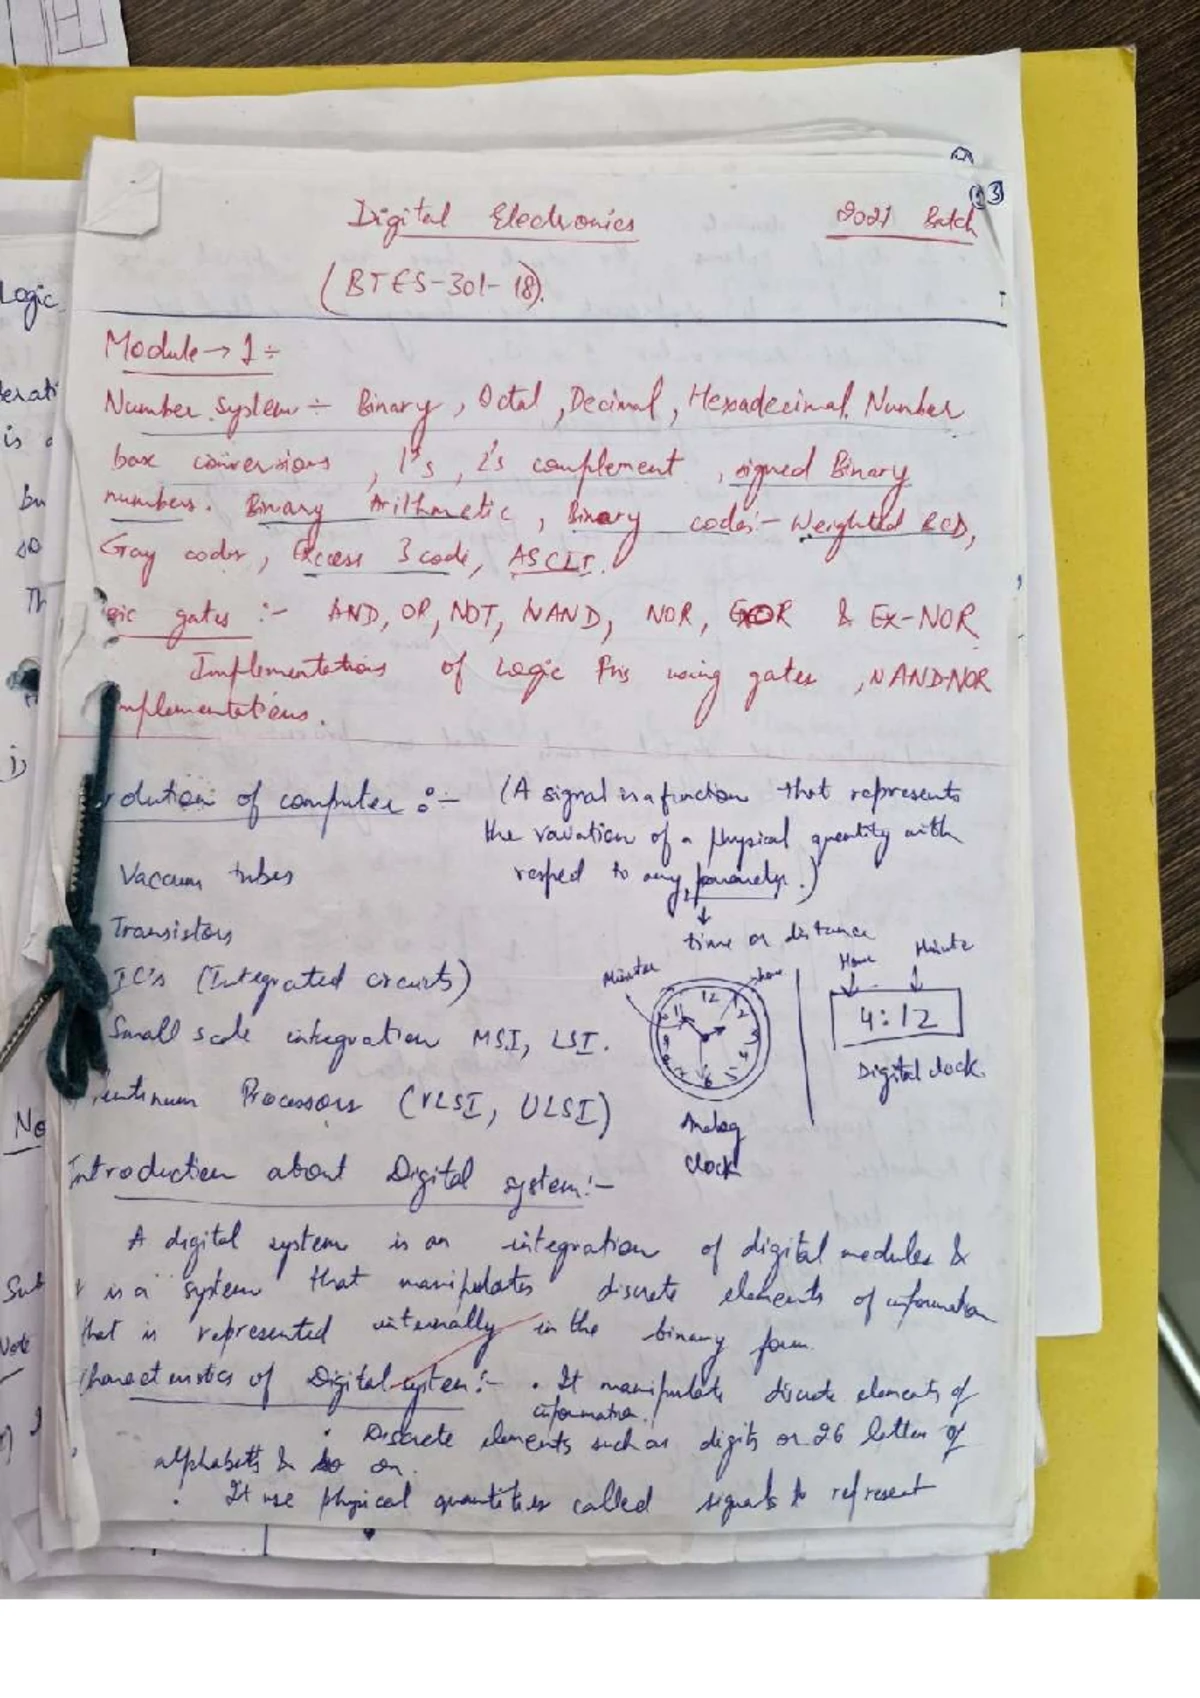 Digital Electronics 2021 Batch
(BTES-301-18).
Module → 1 ÷
Number System ÷ Binary, Octal, Decimal, Hexadecimal. Number
base conversions, 1's, 2's complement, signed Binary
numbers. Binary Arithmetic, Binary codes:- Weighted BCD,
Gray codes, Excess 3 code, ASCII.
gic gates :- AND, OR, NOT, NAND, NOR, EXOR & Ex-NOR
Implementations of Logic Fns using gates, NAND-NOR
mplementations.
olution of computer :- (A signal is a function that represents
the variation of a physical quantity with
respect to any parameter.)
Vaccum tubes
time or distance
Transistors
IC's (Integrated circuits)
Minute
Hour
Hour
Minute
12
4:12
Small scale integration MSI, LSI.
Digital clock
Processors (VLSI, ULSI)
Analog
clock
Introduction about Digital system:-
A digital system is an integration of digital modules &
t is a system that manipulates discrete elements of information
that is represented internally in the binary form
characteristics of Digital system:- • It manipulate discrete elements of
information.
• Discrete elements such as digits or 26 letter of
alphabets & so on.
• It use physical quantities called signals to represent
Logic
is
bu
so
Th
No
Sub
Note